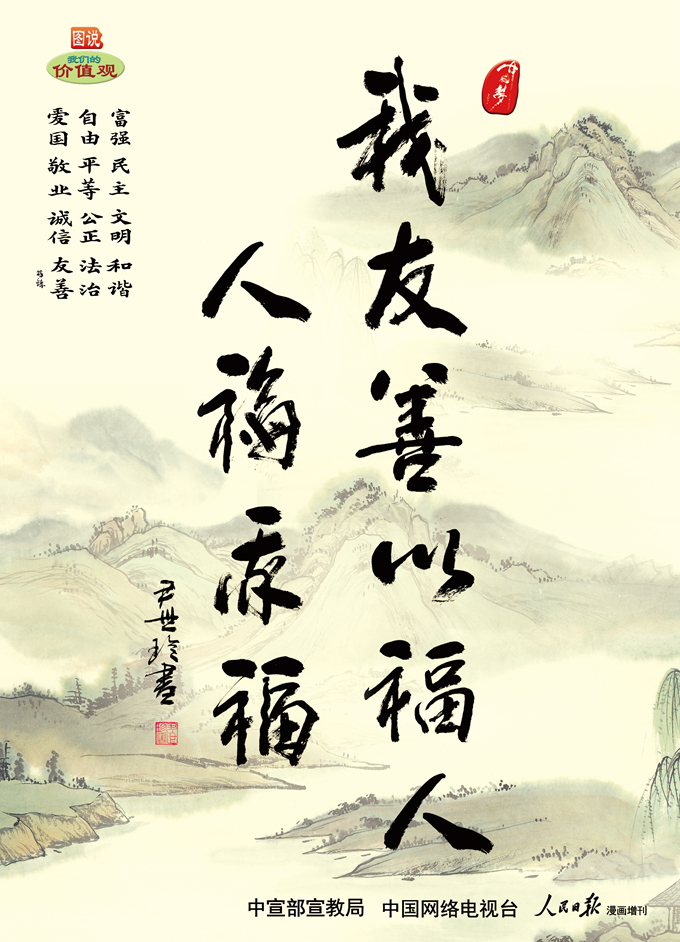 图说
我们的
价值观
中国梦
富强 民主 文明 和谐
自由 平等 公正 法治
爱国 敬业 诚信 友善
我友善以福人
人福亦福
尹世玲書
中宣部宣教局 中国网络电视台 人民日报 漫画增刊